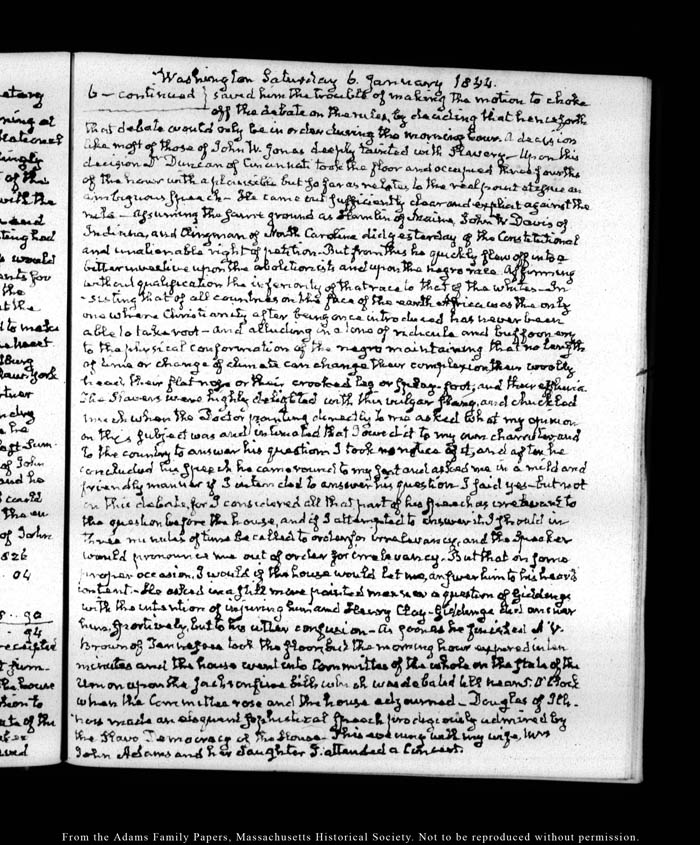 Washington Saturday 6. January 1844.
6 – continued } saved him the trouble of making the motion to choke
off the debate on the rules, by deciding that henceforth
that debate would only be in order during the morning hour. A decision
like most of those of John W. Jones deeply tainted with Slavery – Upon this
decision Dr Duncan of Cincinnati took the floor and occupied three fourths
of the hour with a plausible but so far as relates to the real point at issue an
ambiguous speech – He came out sufficiently clear and explicit against the
rule – assuming the same ground as Hamlin of Maine, John W. Davis of
Indiana, and Clingman of North Carolina did yesterday of the Constitutional
and unalienable right of petition – But from this he quickly flew off into a
bitter invective upon the abolitionists and upon the negro race. Affirming
without qualification the inferiority of that race to that of the whites – In-
-sisting that of all countries on the face of the earth Africa was the only
one where Christianity after being once introduced has never been
able to take root – and alluding in a tone of ridicule and buffoonery
to the physical conformation of the negro maintaining that no length
of time or change of climate can change their complexion, their woolly
head, their flat nose or their crooked leg or splay-foot, and their effluvia.
The Slavers were highly delighted with this vulgar slang, and chuckled
much when the Doctor pointing directly to me asked what my opinion
on this subject was and intimated that I owed it to my own character and
to the country to answer his question. I took no notice of it, and after he
concluded his speech he came round to my seat and asked me in a mild and
friendly manner if I intended to answer his question. I said yes – but not
in this debate, for I considered all that part of his speech as irrelevant to
the question before the house, and if I attempted to answer it, I should in
three minutes of time be called to order for irrelevancy, and the Speaker
would pronounce me out of order for irrelevancy. But that on some
proper occasion, I would if the house would let me, answer him to his heart's
content. – He asked in a still more pointed manner a question of Giddings
with the intention of injuring him and Henry Clay – Giddings did answer
him, sportively, but to his utter confusion – As soon as he finished A. V.
Brown of Tennessee took the floor, but the morning hour expired in ten
minutes and the house went into Committee of the whole on the state of the
Union upon the Jackson fine bill, which was debated till near 5. O'Clock
when the Committee rose and the house adjourned – Douglas of Illi-
nois made an eloquent sophistical speech prodigiously admired by
the Slave Democracy of the House – This evening with my wife, Mrs
John Adams and her daughter I attended a Concert.
From the Adams Family Papers, Massachusetts Historical Society. Not to be reproduced without permission.